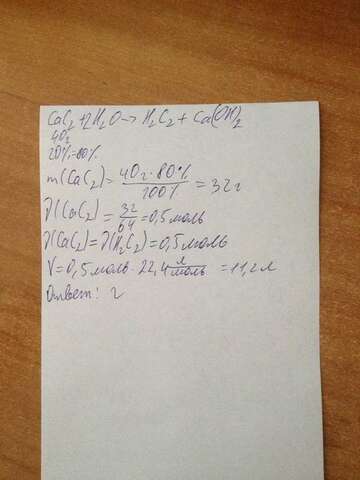 CaC2 + 2H2O → H2C2 + Ca(OH)2
40г
20% = 80%
m(CaC2) = 40г · 80% / 100% = 32г
ν(CaC2) = 32 / 64 = 0,5 моль
ν(CaC2) = ν(H2C2) = 0,5 моль
V = 0,5 моль · 22,4 л/моль = 11,2 л
Ответ: 2